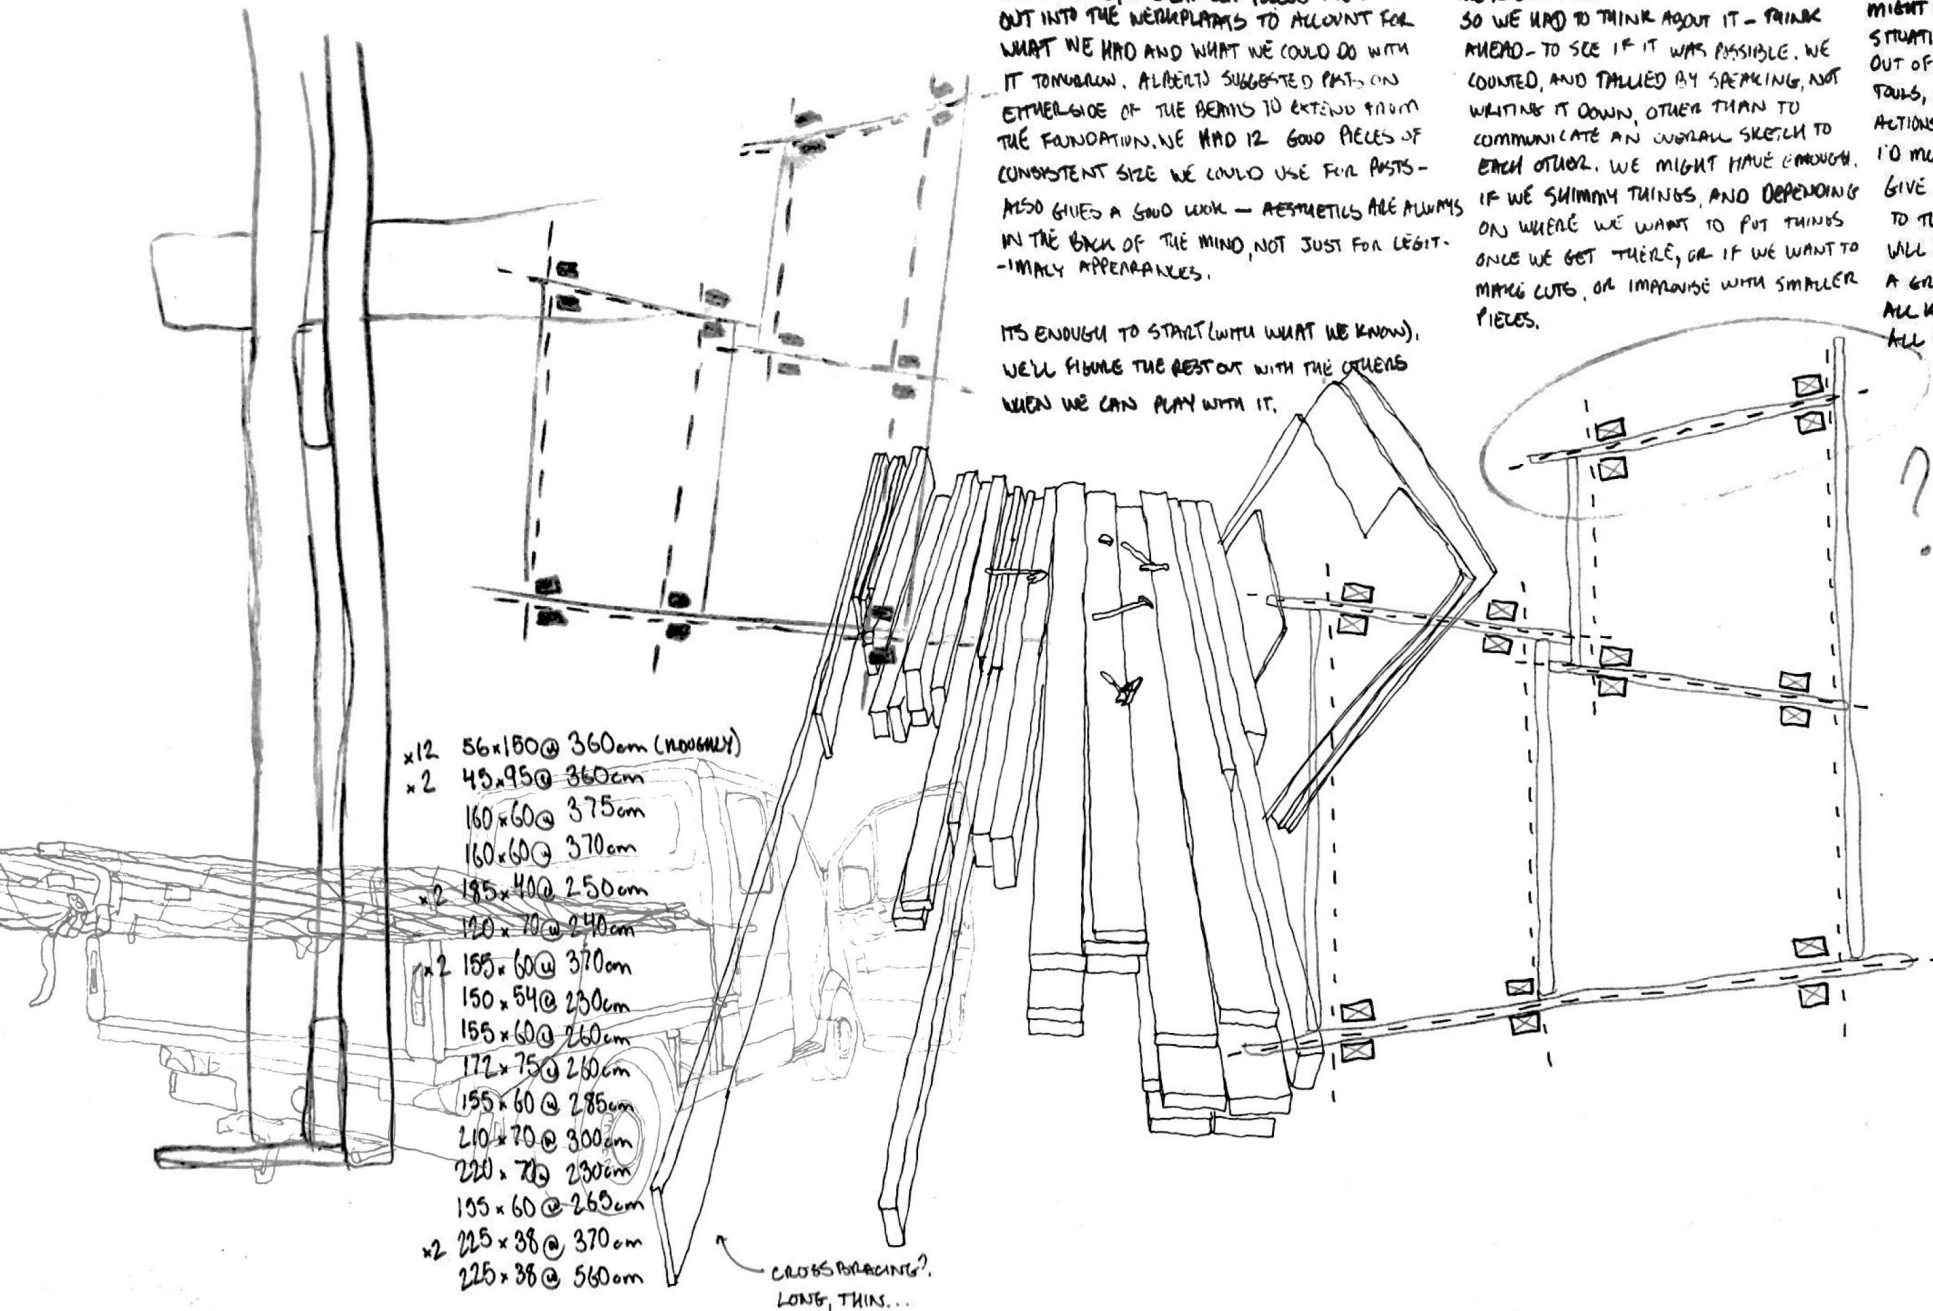 OUT INTO THE WERKPLAATS TO ACCOUNT FOR
WHAT WE HAD AND WHAT WE COULD DO WITH
IT TOMORROW. ALBERTO SUGGESTED POSTS ON
EITHERSIDE OF THE BEAMS TO EXTEND FROM
THE FOUNDATION. WE HAD 12 GOOD PIECES OF
CONSISTENT SIZE WE COULD USE FOR POSTS-
ALSO GIVES A GOOD LOOK — AESTHETICS ARE ALWAYS
IN THE BACK OF THE MIND, NOT JUST FOR LEGIT-
-IMACY APPEARANCES.
ITS ENOUGH TO START (WITH WHAT WE KNOW).
WE'LL FIGURE THE REST OUT WITH THE OTHERS
WHEN WE CAN PLAY WITH IT.
SO WE HAD TO THINK ABOUT IT - THINK
AHEAD - TO SEE IF IT WAS POSSIBLE. WE
COUNTED, AND TALLIED BY SPEAKING, NOT
WRITING IT DOWN, OTHER THAN TO
COMMUNICATE AN OVERALL SKETCH TO
EACH OTHER. WE MIGHT HAVE ENOUGH.
IF WE SHIMMY THINGS, AND DEPENDING
ON WHERE WE WANT TO PUT THINGS
ONCE WE GET THERE, OR IF WE WANT TO
MAKE CUTS, OR IMPROVISE WITH SMALLER
PIECES.
MIGHT
SITUATI
OUT OF
TOOLS,
ACTIONS
I'D MU
GIVE
TO TH
WILL
A GR
ALL
ALL
?
x12 56x150@ 360cm (ROUGHLY)
x2 45x95@ 360cm
160x60@ 375cm
160x60@ 370cm
x2 185x40@ 250cm
120x70@ 240cm
x2 155x60@ 370cm
150x54@ 230cm
155x60@ 260cm
172x75@ 260cm
155x60@ 285cm
210x70@ 300cm
220x70@ 230cm
155x60@ 265cm
x2 225x38@ 370cm
225x38@ 560cm
CROSSBRACING?.
LONG, THIN...